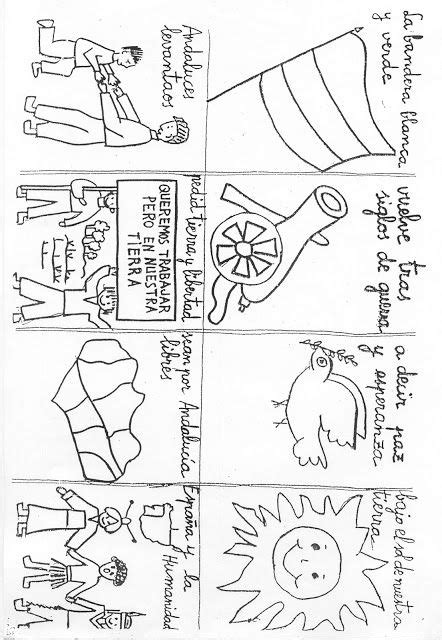 La bandera blanca
y verde
vuelve tras
siglos de guerra
a decir paz
y esperanza
bajo el sol de nuestra
tierra
Andaluces
levantaos
pedid tierra y libertad
QUEREMOS TRABAJAR
PERO EN NUESTRA
TIERRA
sean por Andalucía
libres
España y la
Humanidad